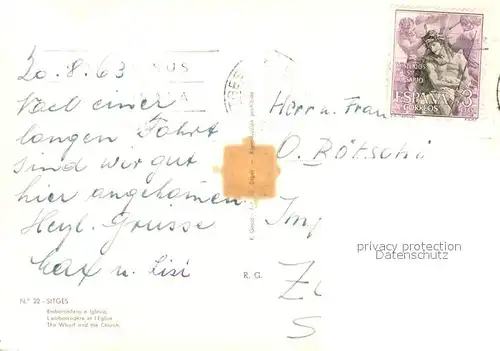 20.8.63
Nach einer
langen Fahrt
sind wir gut
hier angekommen
Herzl. Grüsse
Max u. Lisi
N.° 22 - SITGES
Embarcadero e Iglesia
L'embarcadère et l'Eglise
The Wharf and the Church
R. G.
Herr u. Frau
O. Bötschi
ESPAÑA 3
CORREOS
privacy protection